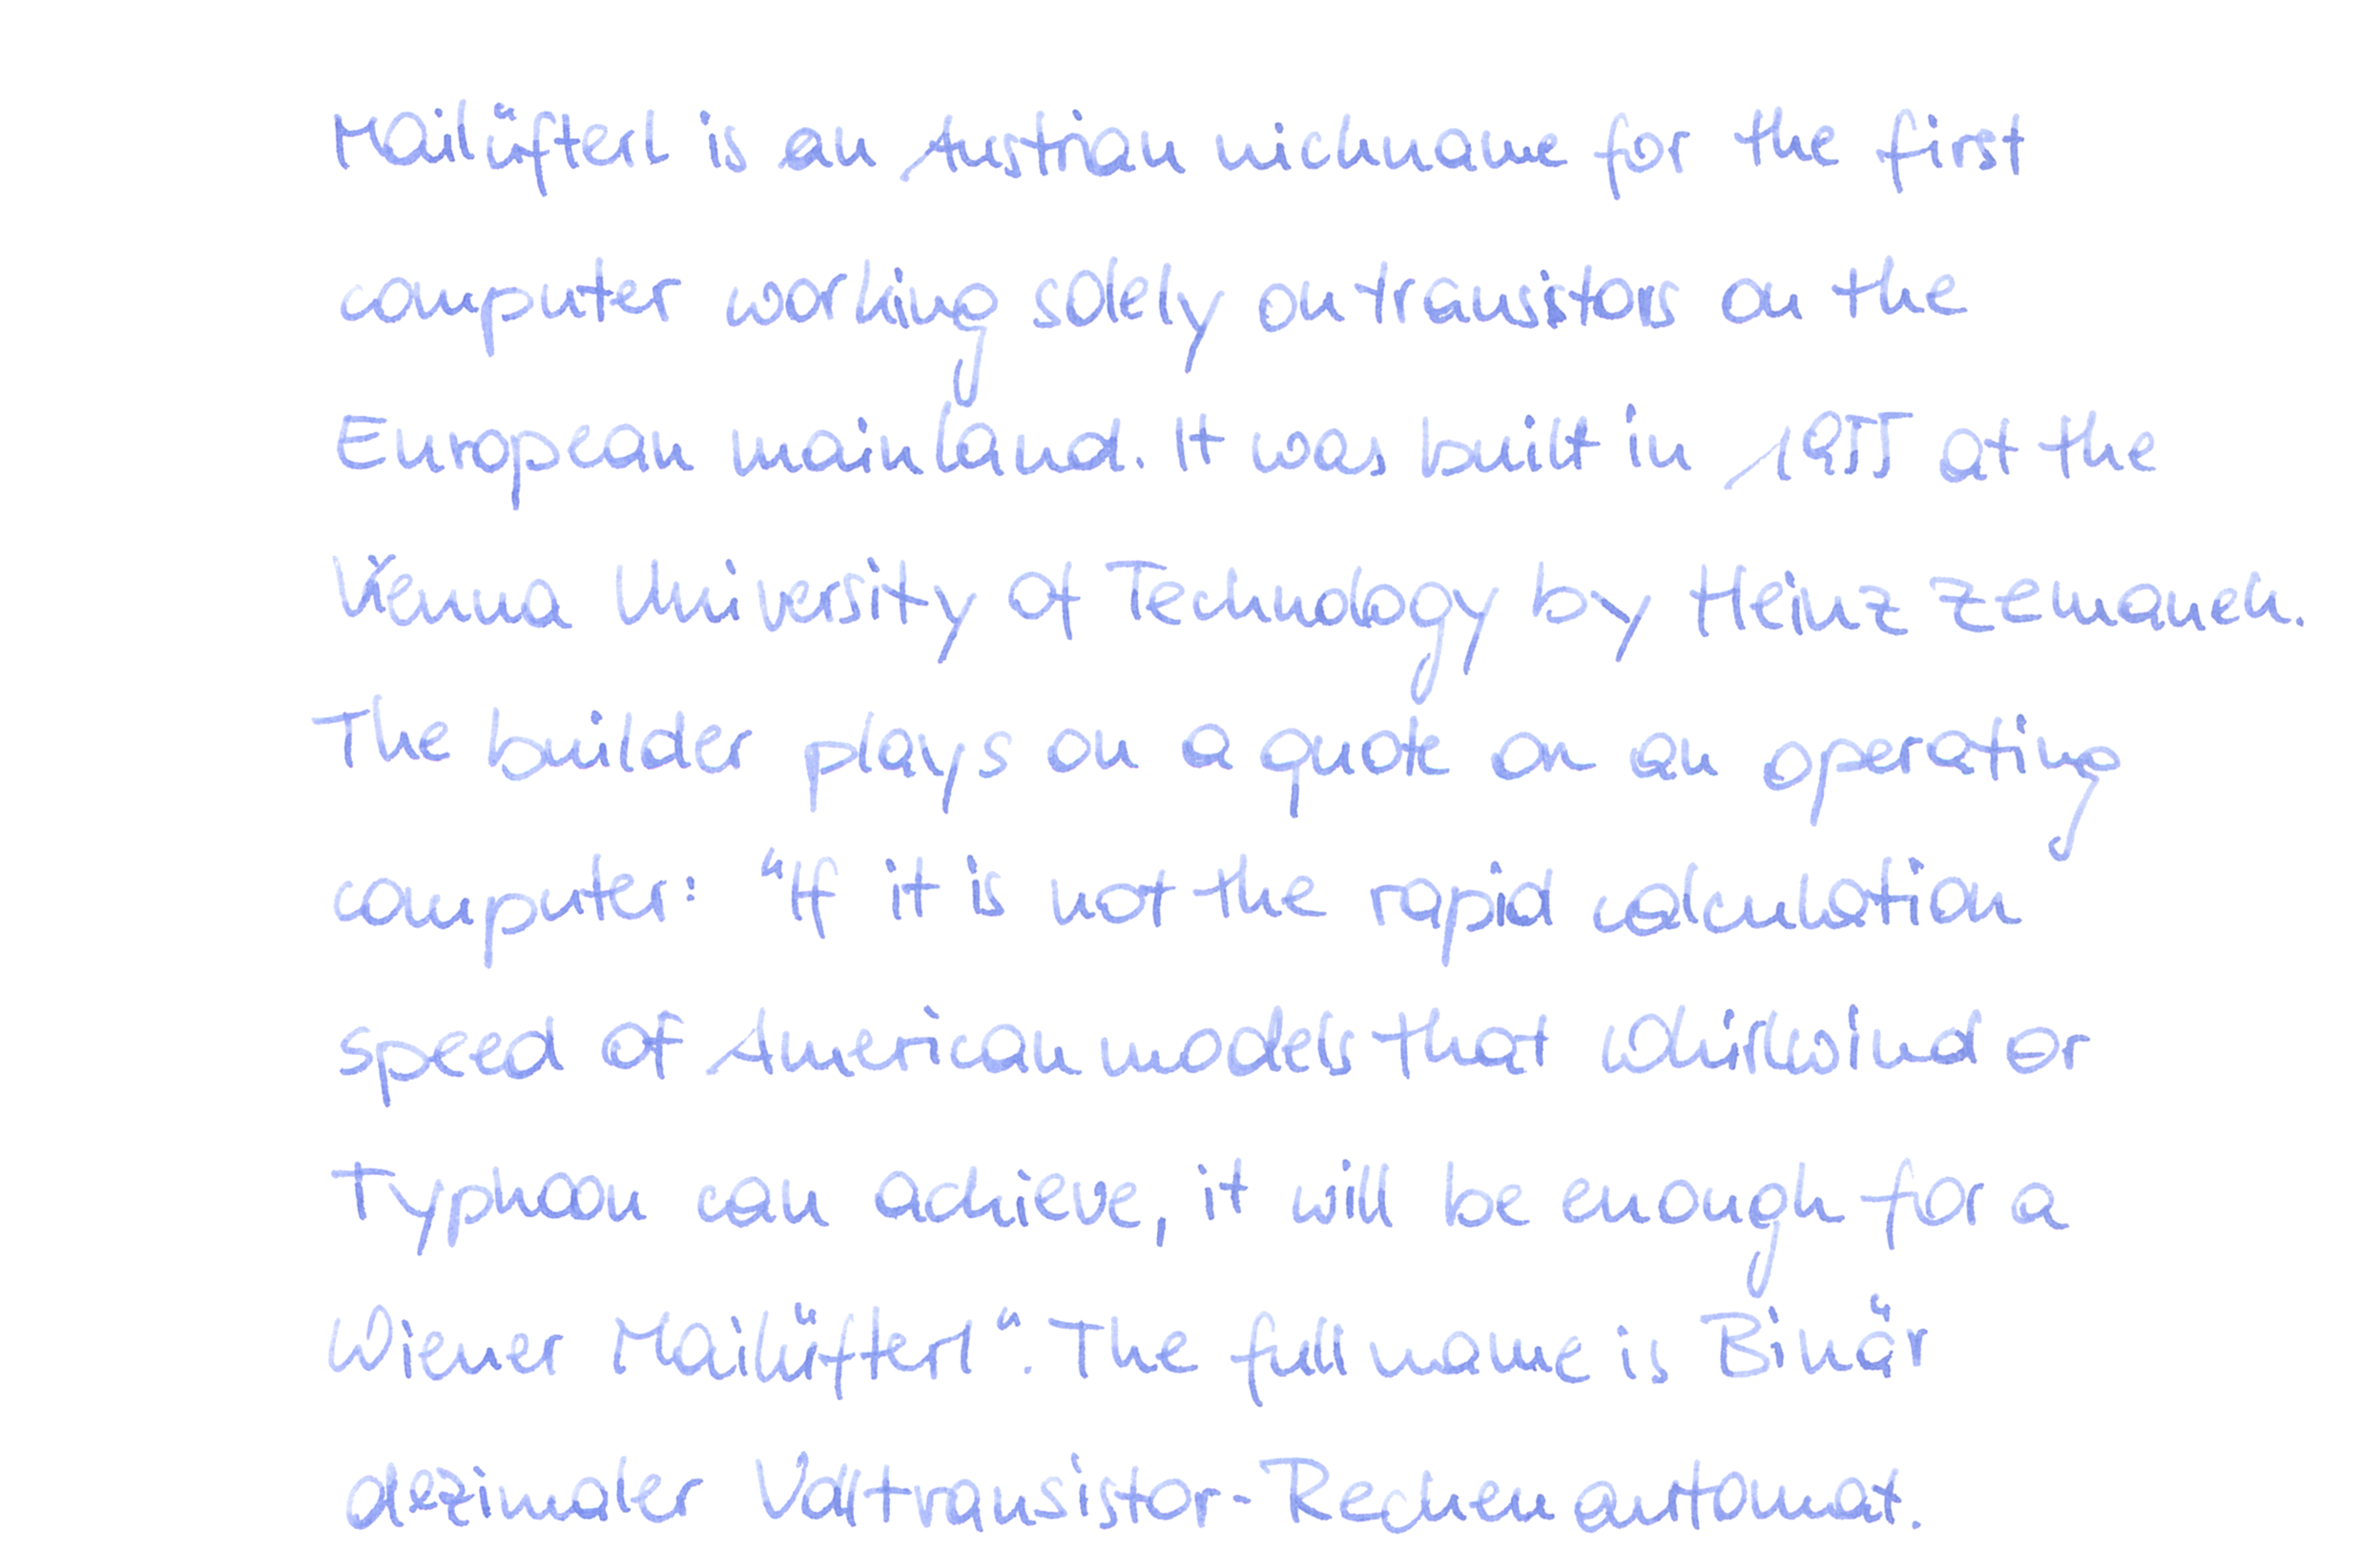 Mailüfterl is an Austrian nickname for the first
computer working solely on transistors on the
European mainland. It was built in 1955 at the
Vienna University of Technology by Heinz Zemanek.
The builder plays on a quote on an operating
computer: "If it is not the rapid calculation
speed of American models that Whirlwind or
Typhoon can achieve, it will be enough for a
Wiener Mailüfterl". The full name is Binär
dezimaler Volltransistor-Rechenautomat.